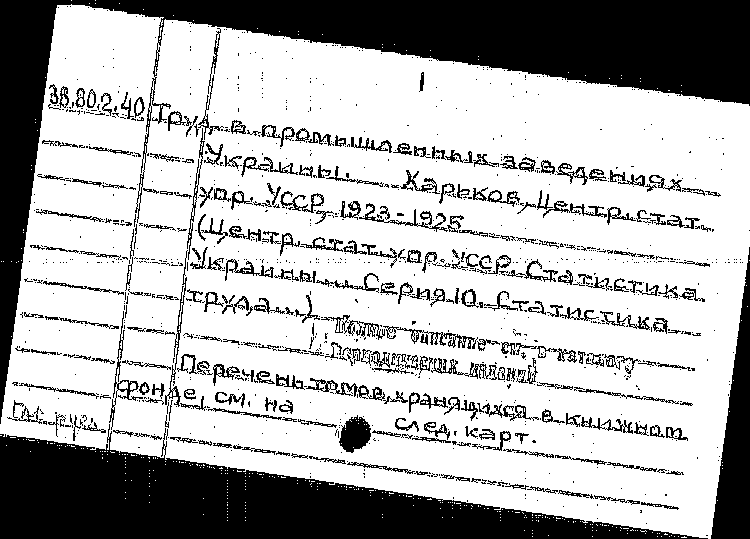 1
38.80.2.40 Труд в промышленных заведениях
Украины. Харьков, Центр. стат.
упр. УССР, 1923-1925
(Центр. стат. упр. УССР. Статистика
Украины... Серия 10. Статистика
труда...)
Полное описание см. в каталоге
Периодических изданий
Перечень томов, хранящихся в книжном
фонде, см. на след. карт.